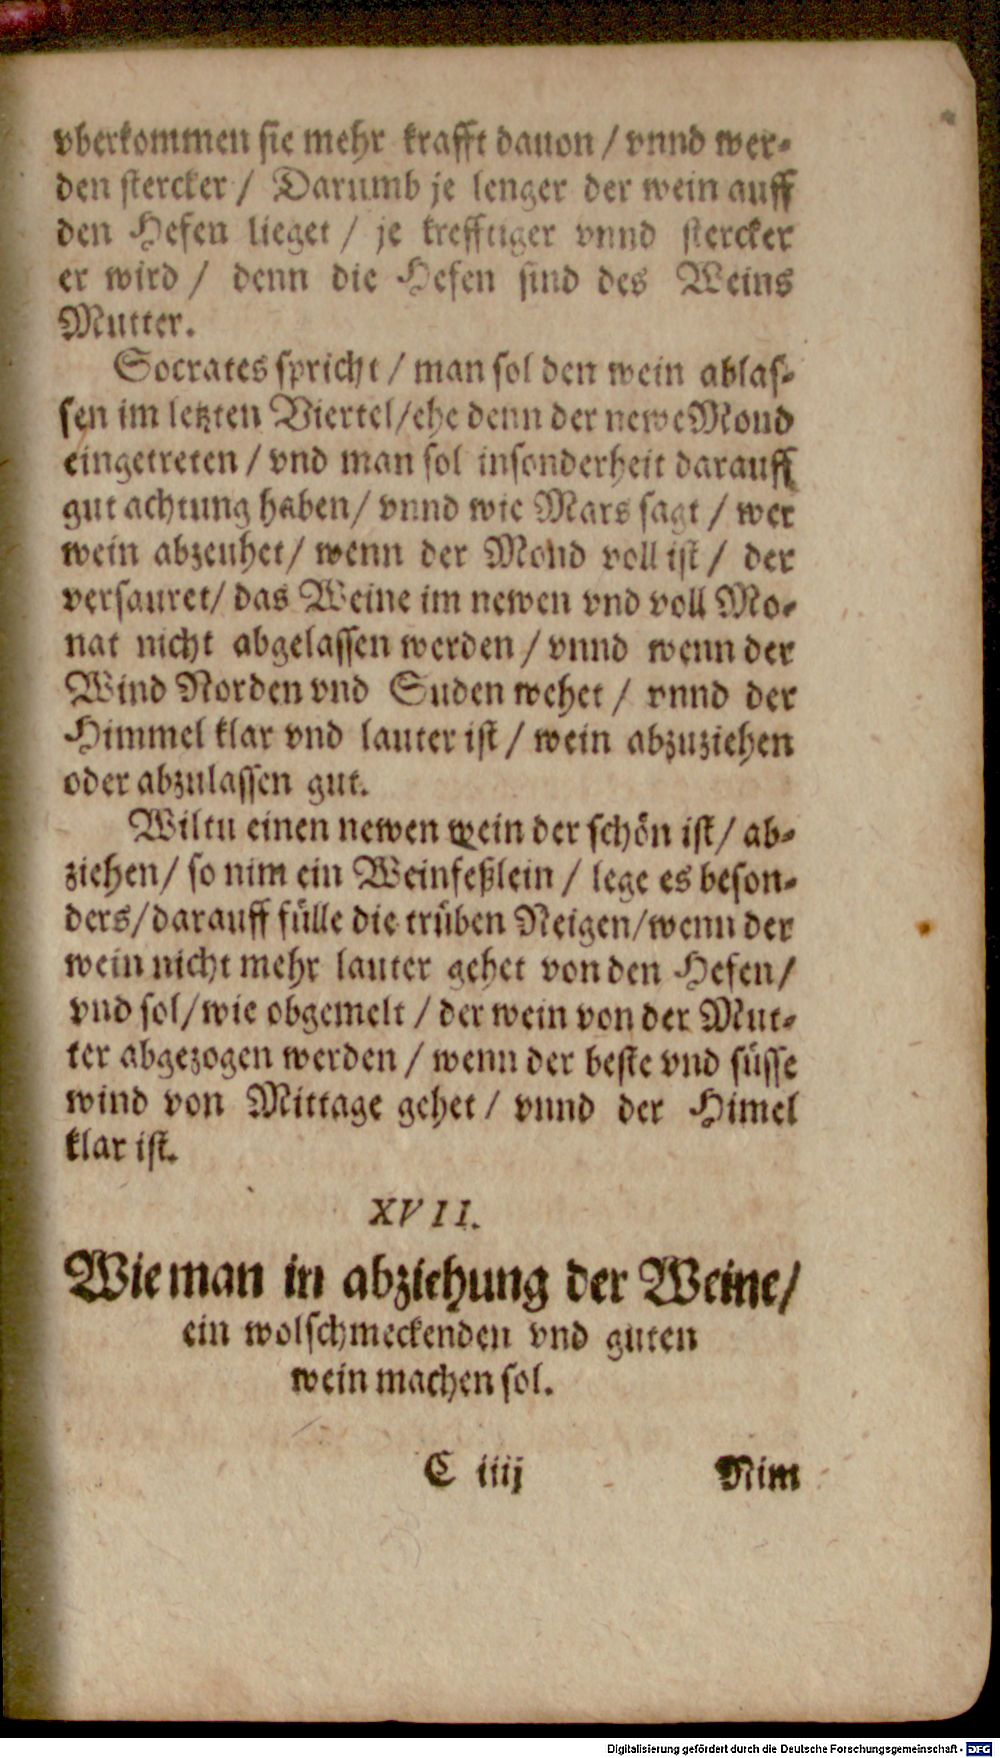 vberkommen sie mehr krafft dauon / vnnd wer-
den stercker / Darumb je lenger der wein auff
den Hefen lieget / je krefftiger vnnd stercker
er wird / denn die Hefen sind des Weins
Mutter.
Socrates spricht / man sol den wein ablas-
sen im letzten Viertel/ehe denn der newe Mond
eingetreten / vnd man sol insonderheit darauff
gut achtung haben/ vnnd wie Mars sagt / wer
wein abzeuhet/ wenn der Mond voll ist / der
versauret/ das Weine im newen vnd voll Mo-
nat nicht abgelassen werden / vnnd wenn der
Wind Norden vnd Suden wehet / vnnd der
Himmel klar vnd lauter ist / wein abzuziehen
oder abzulassen gut.
Wiltu einen newen wein der schön ist/ ab-
ziehen/ so nim ein Weinfeßlein / lege es beson-
ders/darauff fülle die trüben Neigen/wenn der
wein nicht mehr lauter gehet von den Hefen/
vnd sol/wie obgemelt / der wein von der Mut-
ter abgezogen werden / wenn der beste vnd süsse
wind von Mittage gehet / vnnd der Himel
klar ist.
XVII.
Wie man in abziehung der Weine/
ein wolschmeckenden vnd guten
wein machen sol.
C iiij Nim
Digitalisierung gefördert durch die Deutsche Forschungsgemeinschaft - DFG